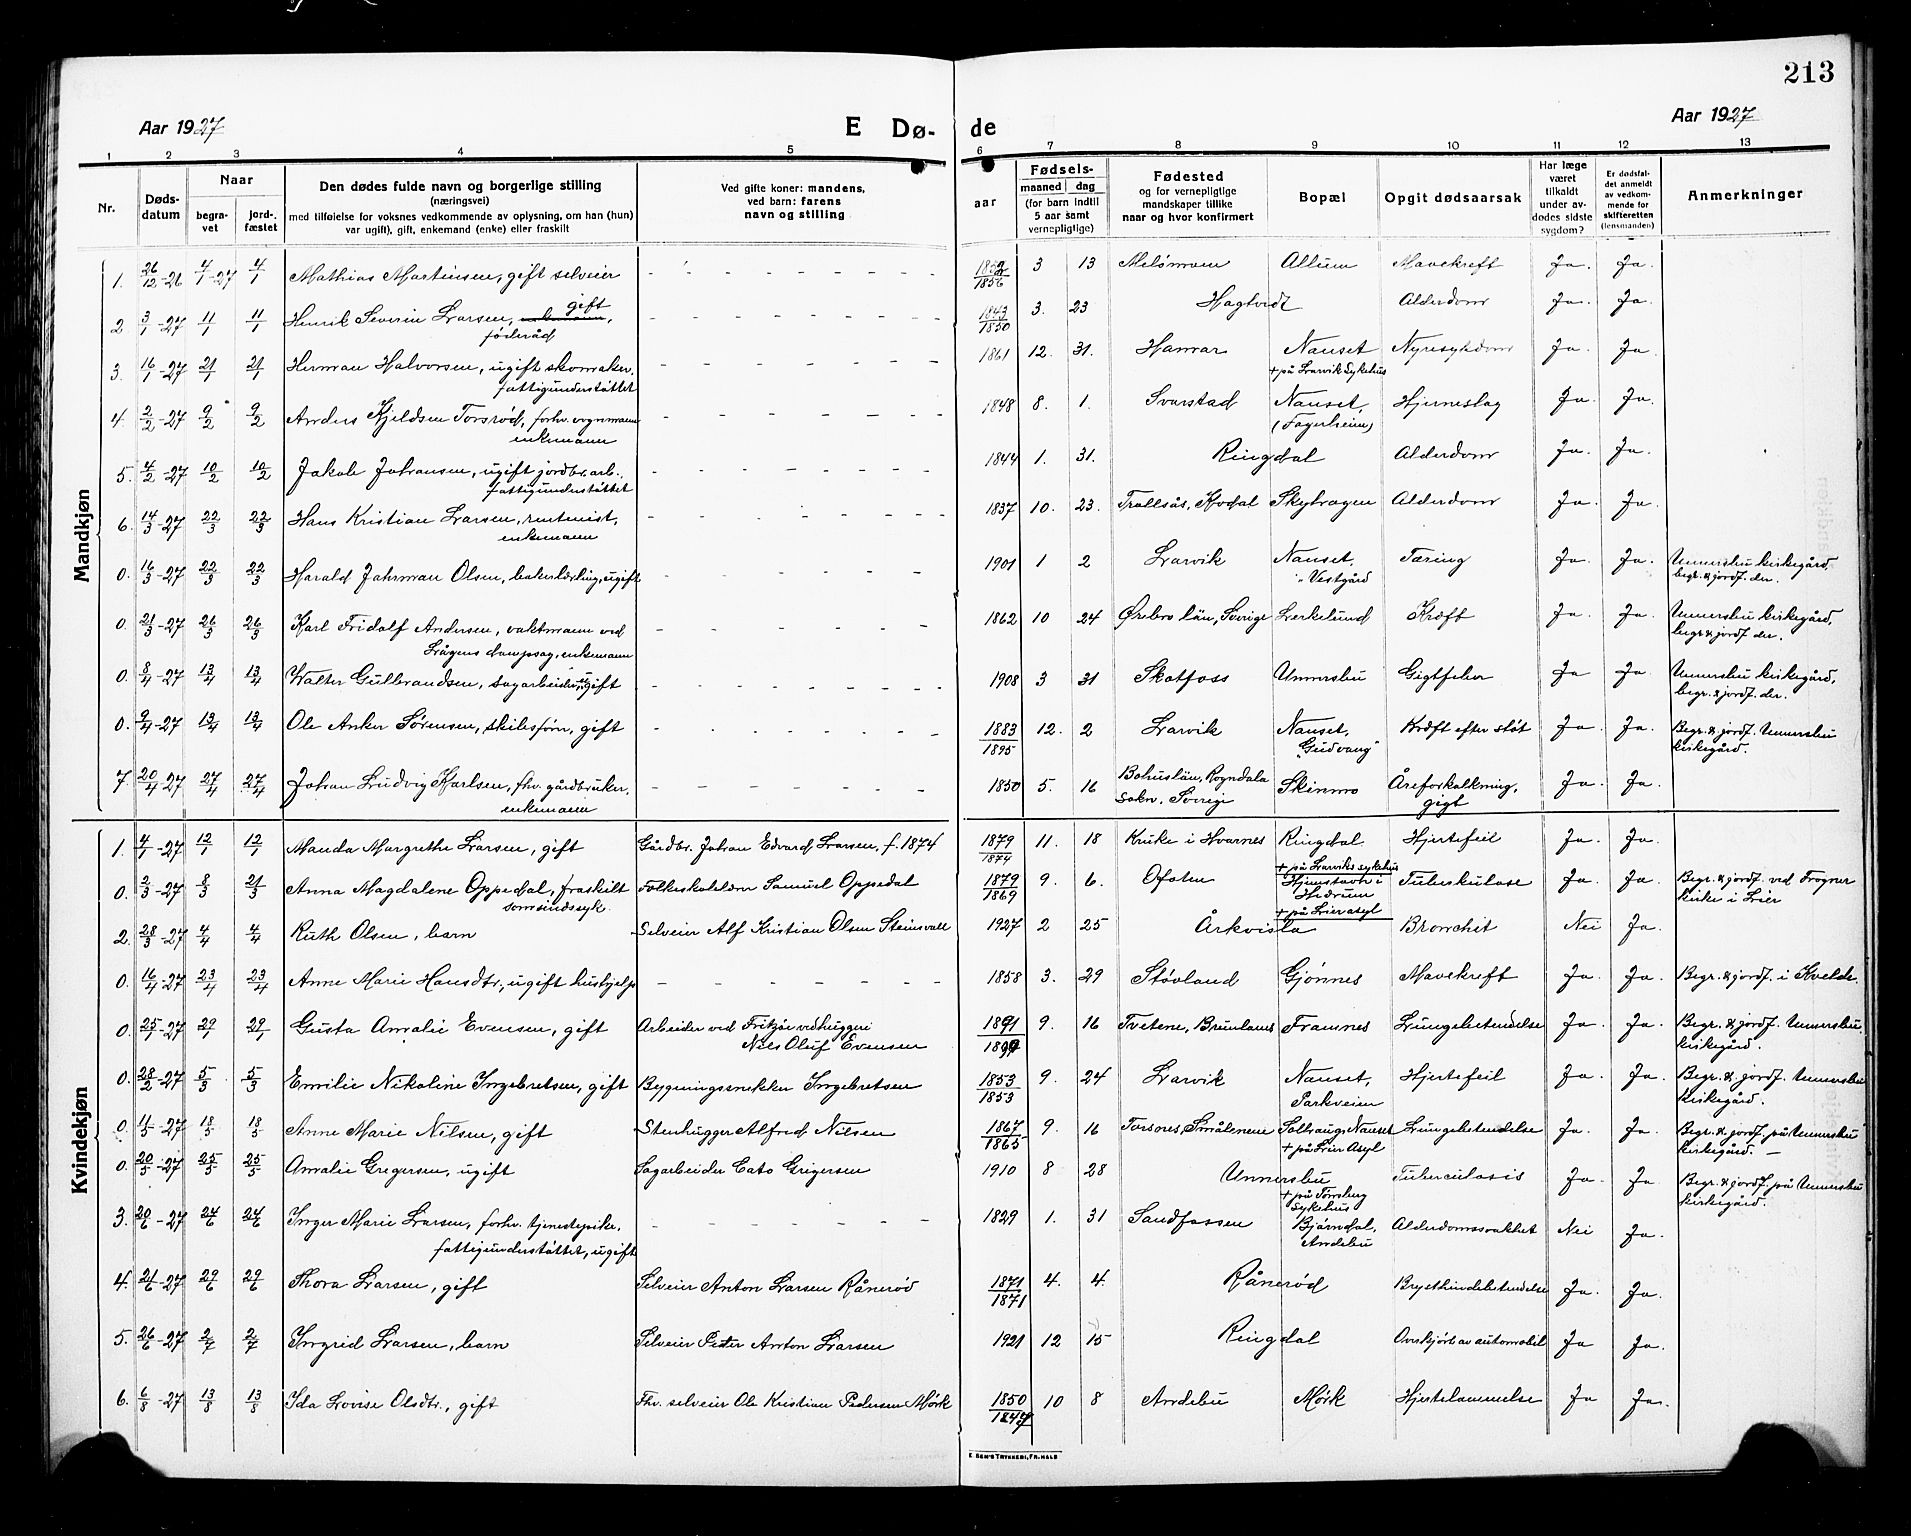 213
Aar 1927
E Dø-
de
Aar 1927
1 2 3 4 5 6 7 8 9 10 11 12 13
Nr.
Døds-
datum
Naar
begra-
vet
jord-
fæstet
Den dødes fulde navn og borgerlige stilling
(næringsvei)
med tilføielse for voksnes vedkommende av oplysning, om han (hun)
var ugift), gift, enkemand (enke) eller fraskilt
Ved gifte koner: mandens,
ved barn: farens
navn og stilling
aar
Fødsels-
maaned dag
(for barn indtil
5 aar samt
vernepligtige)
Fødested
og for vernepligtige
mandskaper tillike
naar og hvor konfirmert
Bopæl
Opgit dødsaarsak
Har læge
været
tilkaldt
under av-
dødes sidste
sygdom?
Er dødsfal-
det anmeldt
av vedkom-
mende for
skifteretten
(lensmanden)
Anmerkninger
Mandkjøn
1. 26/12-26 4/1-27 4/1 Mathias Martinsen, gift selveier - - - - - - - 1852/1856 3 13 Allum Mavekreft Ja. Ja.
2 3/1-27 11/1 11/1 Henrik Severin Larsen, gift
føderåd - - - - - - - 1843/1850 3. 23 Hagtvedt Alderdom Ja. Ja.
3. 16/1-27 21/1 21/1 Herman Halvorsen, ugift skomaker,
fattigunderstøttet - - - - - - - 1861 12. 31. Hamar Nanset
+ på Larvik Sykehus Nyresykdom Ja. Ja.
4. 2/2-27 9/2 9/2 Anders Kjeldsen Torsrød, forhv. vognmann
enkemann - - - - - - - 1848 8. 1. Svarstad Nanset,
(Fagerheim) Hjerneslag Ja. Ja.
5. 4/2-27 10/2 10/2 Jakob Johansen, ugift jordbr. arb.,
fattigunderstøttet - - - - - - - 1844 1. 31. Ringdal Alderdom Ja. Ja.
6. 14/3-27 22/3 22/3 Hans Kristian Larsen, rentenist,
enkemann - - - - - - - 1837 10. 23. Trollsås, Kodal Skybragen Alderdom Ja. Ja.
0. 16/3-27 22/3 22/3 Harald Johrman Olsen, bakerlærling, ugift - - - - - - - 1901 1 2 Larvik Nanset,
Vestgård Tæring Ja. Ja. Unnersbu kirkegård,
begr. & jordf. der.
0. 21/3-27 26/3 26/3 Karl Fridolf Andersen, vaktmann ved
Lågens dampsag, enkemann - - - - - - - 1862 10 24 Ørebro län, Sverige Lerkelund Kreft Ja. Ja. Unnersbu kirkegård,
begr & jordf. der.
0. 8/4-27 13/4 13/4 Walter Gulbrandsen, sagarbeider, ugift - - - - - - - 1908 3 31 Skotfoss Unnersbu Gigtfeber Ja Ja. Unnersbu kirkegård,
begr. & jordf. der.
0. 9/4-27 13/4 13/4 Ole Anker Sørensen, skibsfører, gift - - - - - - - 1883/1895 12. 2 Larvik Nanset,
"Gudvang" Kreft efter støt Ja. Ja. Begr. & jordf. Unnersbu
kirkegård.
7. 20/4-27 27/4 27/4 Johan Ludvig Karlsen, fhv. gårdbruker,
enkemann - - - - - - - 1850 5. 16 Bohuslän, Rogndala
sokn, Sverige Skinmo Åreforkalkning,
gigt Ja. Ja.
Kvindekjøn
1. 4/1-27 12/1 12/1 Manda Margrethe Larsen, gift Gårdbr. Johan Edvard Larsen, f. 1874 1879/1874 11. 18 Kruke i Hvarnes Ringdal
+ på Larviks sykehus Hjertefeil Ja. Ja.
0. 2/3-27 8/3 21/3 Anna Magdalene Oppedal, fraskilt
som sindssyk. Folkeskolelærer Samuel Oppedal 1879/1869 9. 6. Ofoten Hjemstavn i
Hedrum
+ på Lier asyl Tuberkulose Ja. Ja. Begr. & jordf. ved Frogner
kirke i Lier
2. 28/3-27 4/4 4/4 Ruth Olsen, barn Selveier Alf Kristian Olsen Steinsvall 1927 2 25 Årkvisla Bronchit Nei Ja.
0. 16/4-27 23/4 23/4 Anne Marie Hansdtr., ugift hushjelp - - - - - - - 1858 3. 29 Støvland Gjønnes Mavekreft Ja. Ja. Begr. & jordf. i Kvelde.
0. 25/1-27 29/1 29/1 Gusta Amalie Evensen, gift Arbeider ved Fritzøe vedhuggeri
Nils Oluf Evensen 1891 9. 16 Tvetene, Brunlanes Framnes Lungebetendelse Ja. Ja. Begr. & jordf. Unnersbu
kirkegård.
0. 28/2-27 5/3 5/3 Emilie Nikoline Ingebretsen, gift Bygningssnekker Ingebretsen 1853/1853 9. 24 Larvik Nanset,
Parkveien Hjertefeil Ja. Ja. Begr. & jordf. Unnersbu
kirkegård.
0. 11/5-27 18/5 18/5 Anne Marie Nilsen, gift Stenhugger Alfred Nilsen 1867/1865 9. 16 Torsnes, Smålenene Solhaug, Nanset
+ på Lier Asyl Lungebetendelse Ja. Ja. Begr. & jordf. på Unnersbu
kirkegård. -
0. 20/5-27 25/5 25/5 Amalie Gregersen, ugift Sagarbeider Cato Gregersen 1910 8 28 Unnersbu
+ på Tønsberg
sykehus Tuberculosis Ja. Ja. Begr. & jordf. på Unnersbu
kirkegård.
3. 20/6-27 24/6 24/6 Inger Marie Larsen, forhv. tjenestepike,
fattigunderstøttet, ugift - - - - - - - 1829 1. 31 Sandfossen Bjørndal,
Andebu Alderdomssvakhet Nei Ja.
4. 24/6-27 29/6 29/6 Thora Larsen, gift Selveier Anton Larsen Rånerød 1871/1871 4. 4. Rånerød Brysthindebetendelse Ja. Ja.
5. 26/6-27 2/7 2/7 Ingrid Larsen, barn Selveier Peder Anton Larsen 1921 12 15 Ringdal Overkjørt av automobil Ja Ja.
6. 6/8-27 13/8 13/8 Ida Lovise Olsdtr., gift Fhv. selveier Ole Kristian Pedersen Mørk 1850/1847 10 8 Andebu Mørk Hjertelammelse Ja Ja.